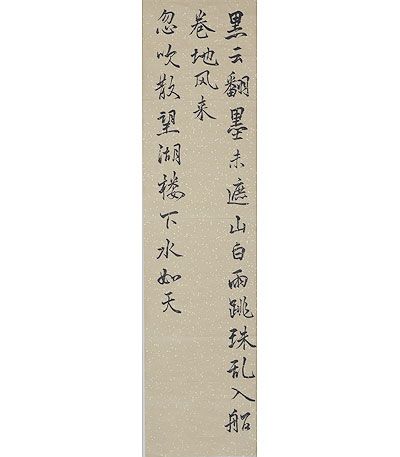 黑云翻墨未遮山白雨跳珠乱入船
卷地风来
忽吹散望湖楼下水如天